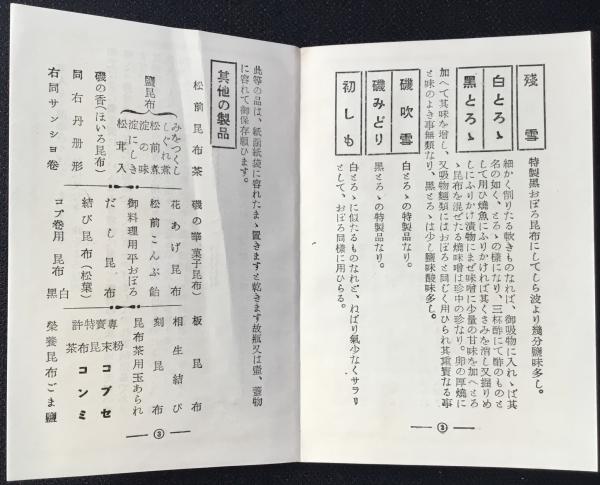 殘雪
特製黒おぼろ昆布にしてしら波より幾分鹽味多し。
白とろゝ
黒とろゝ
細かく削りたる軟きものなれば、御吸物に入れゝば其
名の如く、とろゝの様になり、三杯酢にて酢のものと
して用ひ燒魚にふりかければ其くさみを消し又握りめ
しにふりかけ漬物にまぜ味噌に少量の甘味を加へとろ
ゝ昆布を混ぜたる燒味噌は珍中の珍なり。卵の厚燒に
加へて其味を增し、又吸物麵類にはおぼろと同じく用ひられ其重寳なる事
と味のよき事無類なり、黒とろゝは少し鹽味酸味多し。
磯吹雪
白とろゝの特製品なり。
磯みどり
黒とろゝの特製品なり。
初しも
白とろゝに似たるものなれど、ねばり氣少なくサラリ
として、おぼろ同樣に用ひらる。
②
此等の品は、紙函紙袋に容れたまゝ置きますと乾きます故瓶又は壷、蓋物
に容れて御保存願ひます。
其他の製品
松前昆布茶
鹽昆布
みをつくし
しぐれ煮
松前煮
淀の味
淀にしき
松茸入
磯の香(ほいろ昆布)
同右丹册形
右同サンショ卷
磯の華(菓子昆布)
花あげ昆布
松前こんぶ飴
御料理用平おぼろ
だし昆布
結び昆布(松葉)
コブ卷用昆布 白 黒
板昆布
相生結び
刻昆布
昆布茶用玉あられ
專賣特許 粉末昆布茶 コブセ コンミ
榮養昆布ごま鹽
③